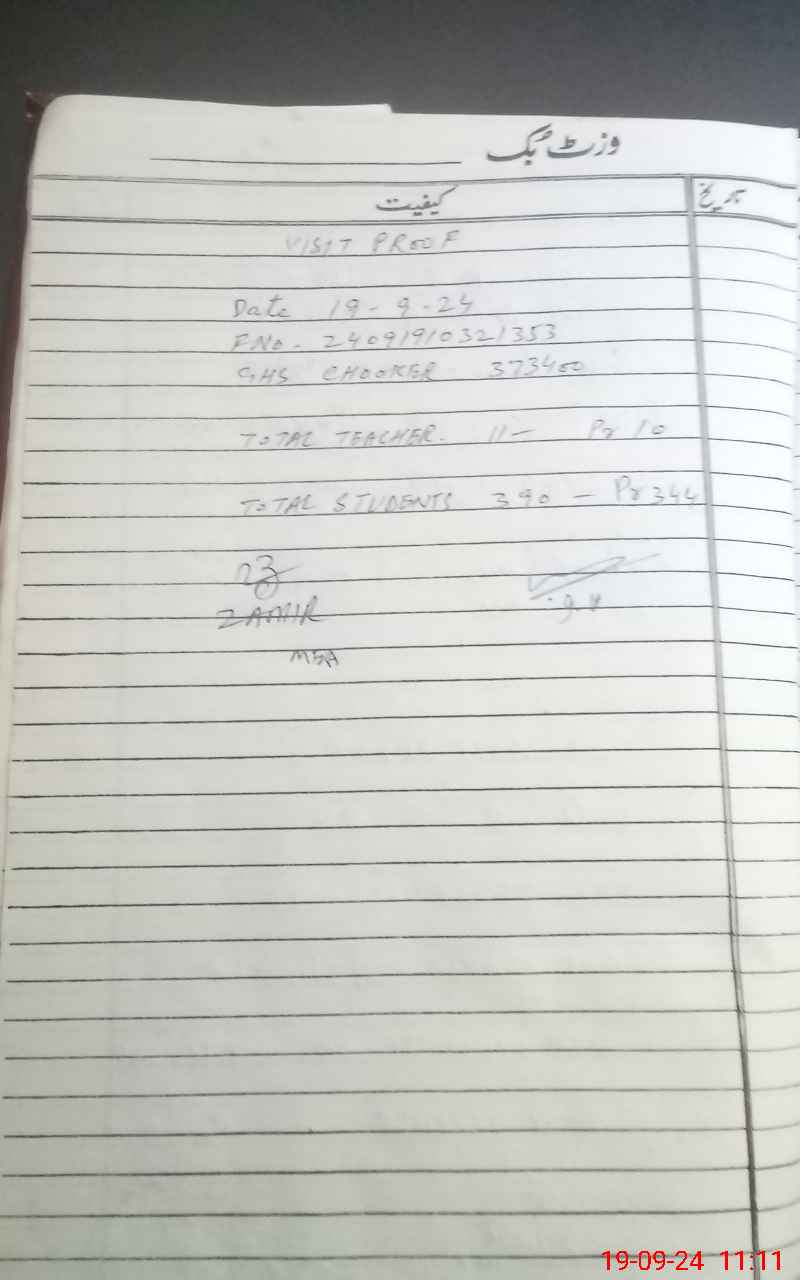 وزٹ بک
کیفیت
تاریخ
VISIT PROOF
Date 19-9-24
F No. 24091910321353
GHS CHOOKER 373400
TOTAL TEACHER. 11 — Pr 10
TOTAL STUDENTS 390 — Pr 344
ZAMIR
MEA
19-09-24 11:11